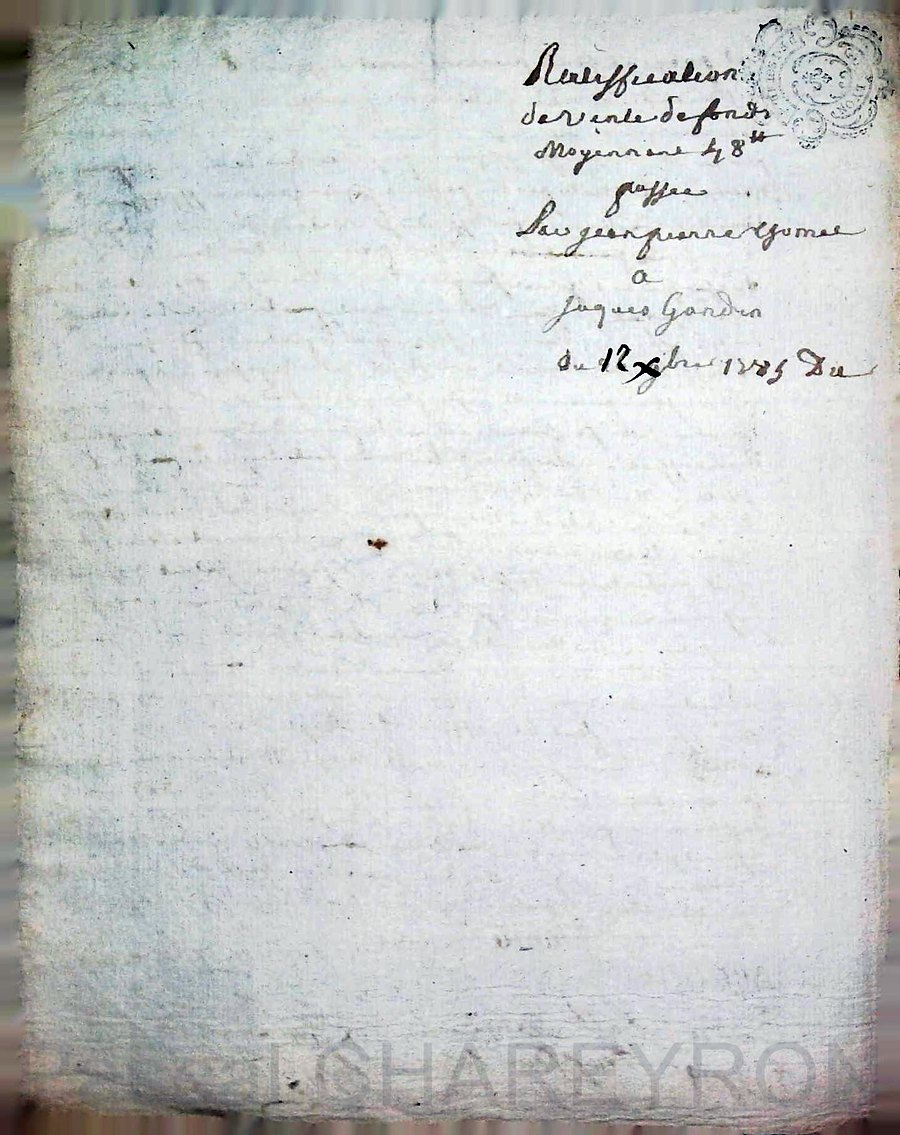 Ratiffication
de vente de fonds
Moyennant 48 ₶
passee
Par jean pierre
a
Jaques Gondin
du 12 Xbre 1785 Du
CHAPEYRON